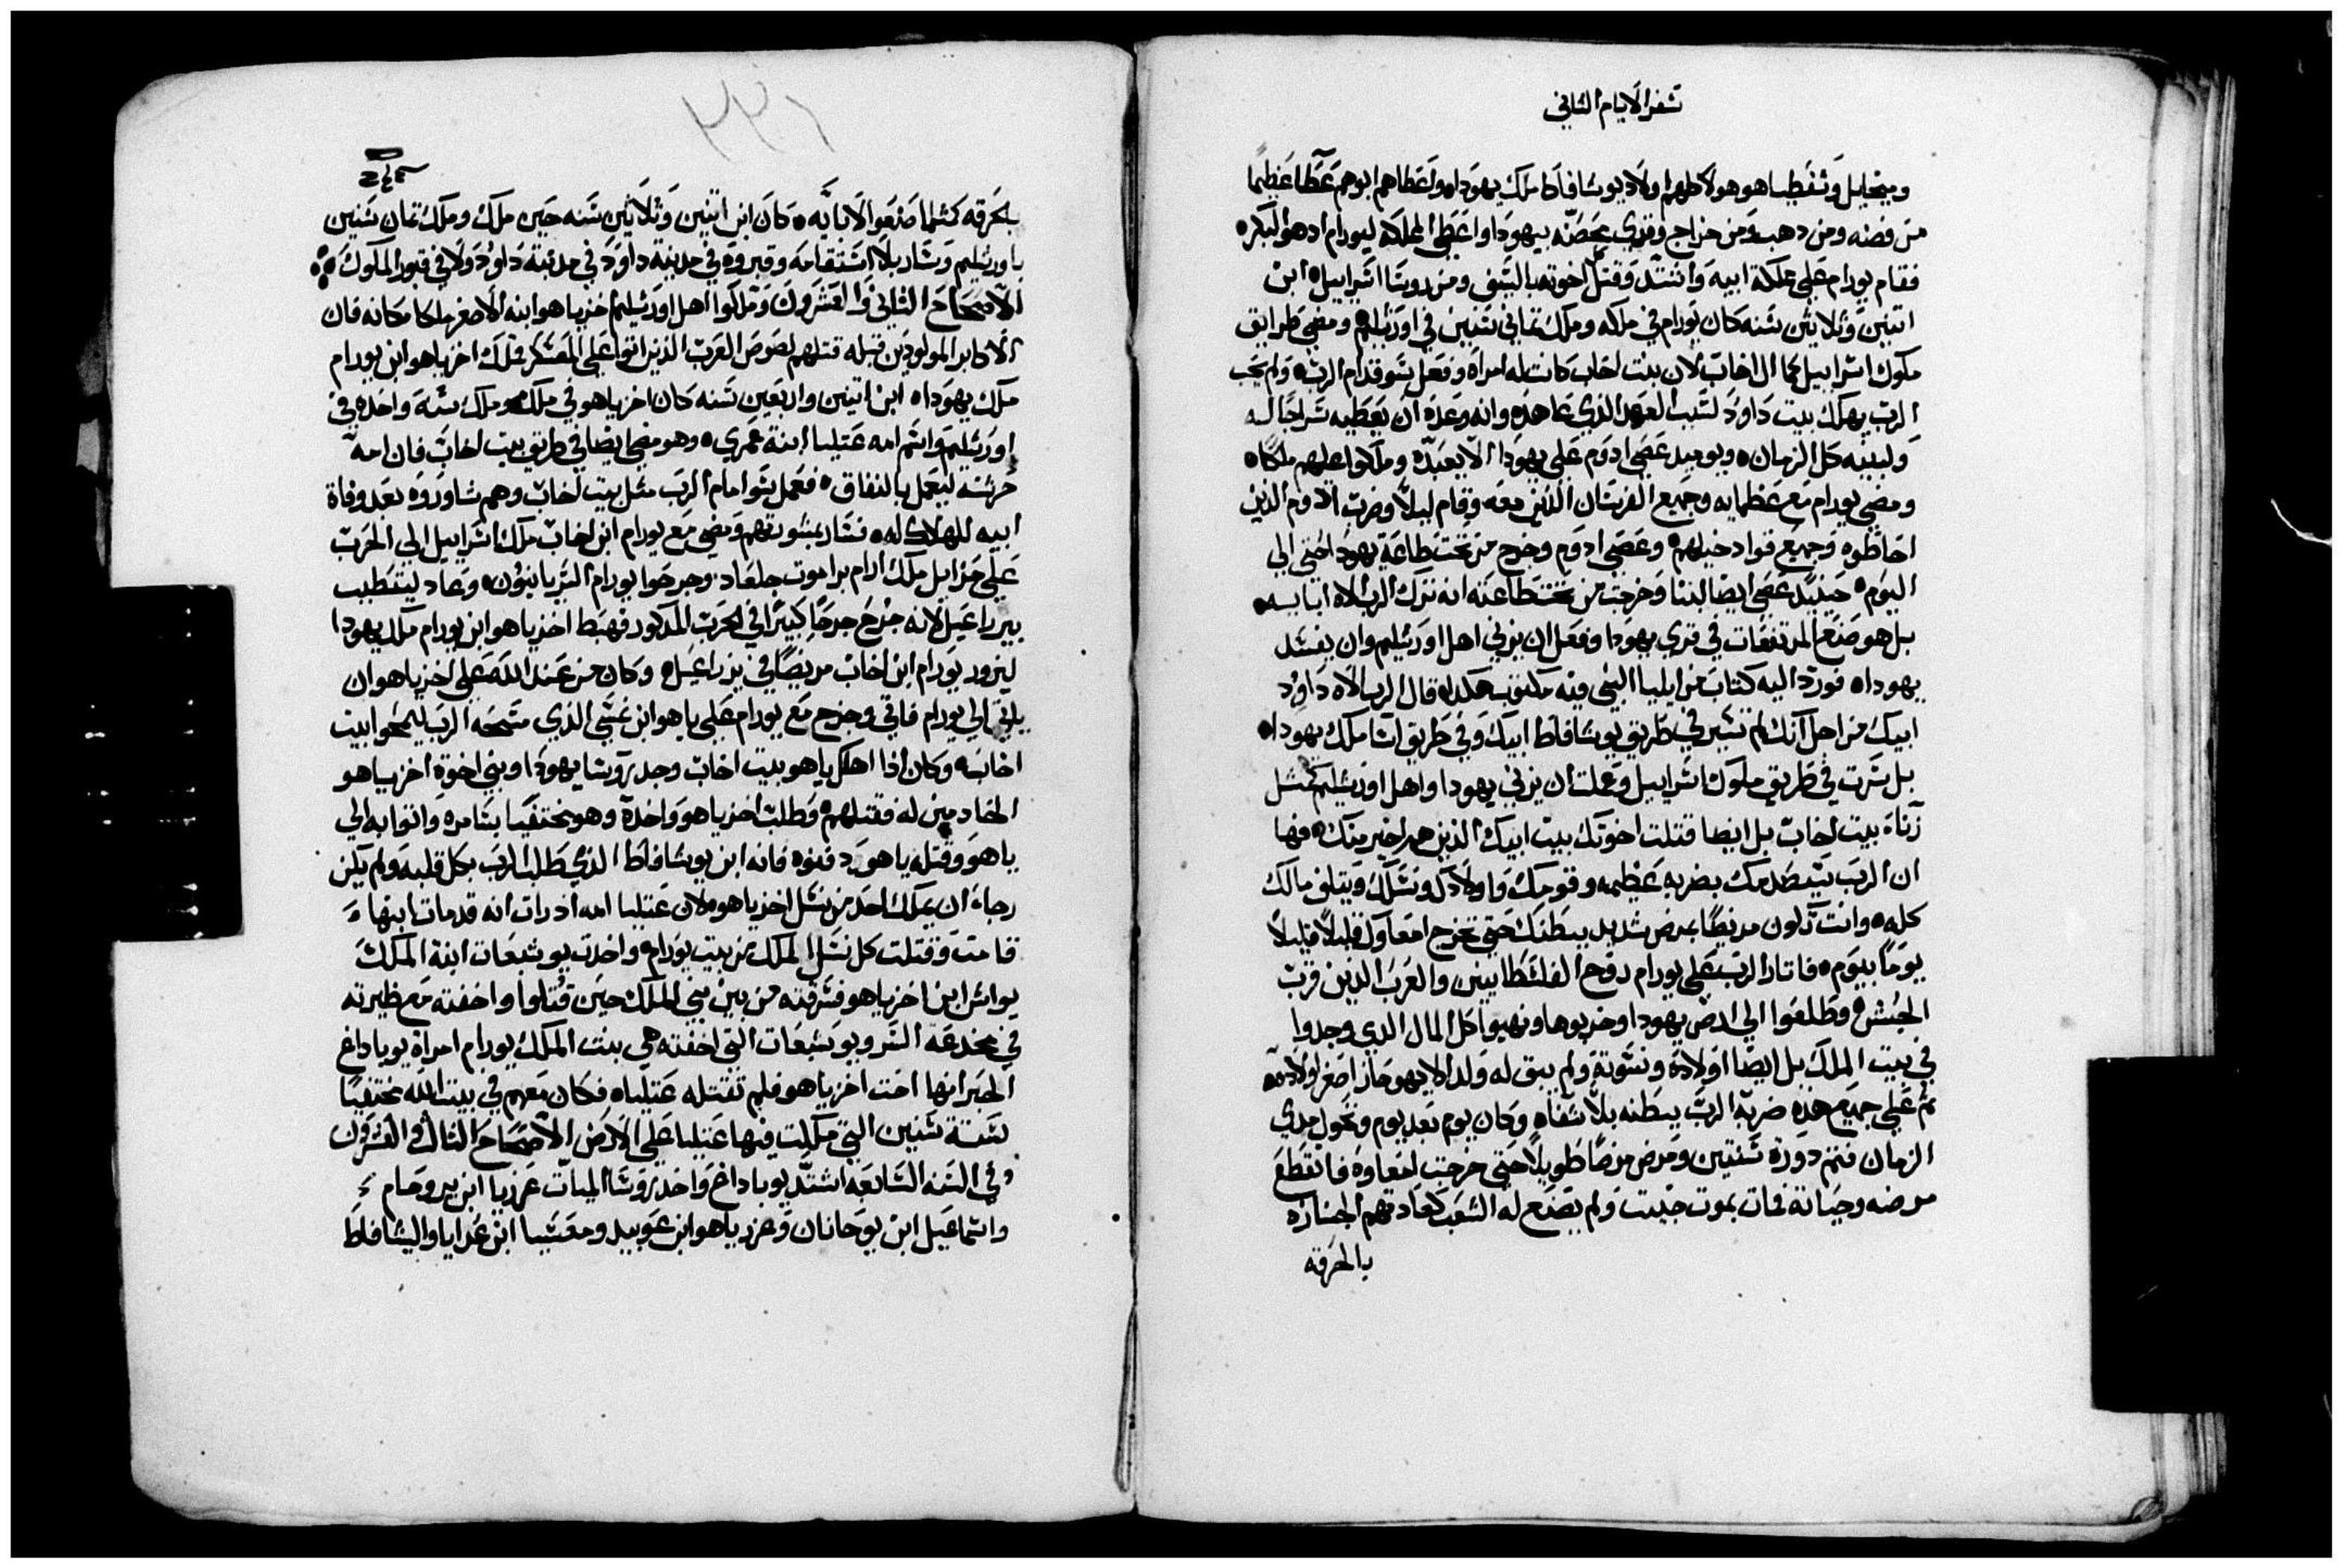 سفر الايام الثاني
وميخايل وشفطيا هو هولا كلهم اولاد يوشافاط ملك يهوداه واعطاهم ابوهم عطا عظيما
من فضه ومن دهب ومن خراج وقري محصنه بيهودا واعطي المملكه ليورام ادهو البكره
فقام يورام علي مملكة ابيه واشتد وقتل اخوته بالسيف ومن روسا اسراييل ابن
اتنين وثلاثين سنه كان يورام في ملكه وملك تماني سنين في اورشليم ومضي طرايق
ملوك اسراييل كما ال اخاب لان بنت اخاب كانت له امراه وفعل سو قدام الرب ولم يحب
الرب يهلك بيت داوود لسبب العهد الذي عاهده وانه وعده ان يعطيه سراجا له
ولبنيه كل الزمان ويوميد عصي ادوم علي يهودا الا يعبده وملكوا عليهم ملكاه
ومضي يورام مع عظمايه وجميع الفرسان الذين معه وقام ليلا وضرب الادوم الذين
احاطوه وجميع قواد خيلهم وعصي ادوم وخرج من تحت طاعة يهودا حتي الي
اليوم حينيد عصي ايضا لبنا وخرجت من تحت طاعته انه ترك الرب الاه ابايه
بل هو صنع المرتفعات في قري يهودا وفعل ان يزني اهل اورشليم وان يفسد
يهوداه فورد اليه كتاب من ايليا النبي فيه مكتوب هكدا قال الرب الاه داوود
ابيك من اجل انك لم تسير في طريق يوشافاط ابيك وفي طريق اسا ملك يهوداه
بل سرت في طريق ملوك اسراييل وعملت ان يزني يهودا واهل اورشليم كمثل
زناه بيت اخاب بل ايضا قتلت اخوتك بيت ابيك الذين هم اخير منك فها
ان الرب سيضربك بضربه عظيمه وقومك واولادك ونسلك ويتلف مالك
كله وانت تكون مريضا بمرض شديد ببطنك حتي تخرج امعاوك قليلا قليلا
يوما بيوم فاتار الرب علي يورام روح الفلسطانيين والعرب الذين قرب
الحبش وطلعوا الي ارض يهودا وخربوها ونهبوا كل المال الذي وجدوا
في بيت الملك بل ايضا اولاده ونسوته ولم يبق له ولد الا يهوحاز اصغر اولاده
ثم علي جميع هده ضربه الرب ببطنه بلا شفاه وكان يوم بعد يوم وتحول مدي
الزمان فتم دورة سنتين ومرض مرضا طويلا حتي خرجت امعاوه فانقطع
مرضه وحياته فمات بموت خبيث ولم يصنع له الشعب كعادتهم الجنازه
بالحرقه
بالحرقه كمثلما صنعوا لابايه وكان ابن اتنين وثلاثين سنه حين ملك وملك تمان سنين
باورشليم وسار بلا استقامه وقبروه في مدينة داوود ولا في قبور الملوك
الاصحاح الثاني والعشرون وملكوا اهل اورشليم اخزياهو ابنه الاصغر ملكا مكانه فان
الاكابر المولودين قبله قتلهم لصوص العرب الذين اتوا علي المعسكر فملك اخزياهو ابن يورام
ملك يهوداه ابن اتنين واربعين سنه كان اخزياهو في ملكه وملك سنه واحده في
اورشليم واسم امه عتليا ابنة عمري وهو مضي ايضا في طريق بيت اخاب فان امه
حرسته ليعمل بالنفاق فعمل سو امام الرب مثل بيت اخاب وهم شاوروه بعد وفاة
ابيه للهلاك له فسار بمشورتهم ومضي مع يورام ابن اخاب ملك اسراييل الي الحرب
علي حزاييل ملك ارام براموت جلعاد وجرحوا يورام السريانيون وعاد ليتطبب
بيزراعيل لانه جرح جرحا كبيرا في الحرب المدكور فهبط اخزياهو ابن يورام ملك يهودا
ليزور يورام ابن اخاب مريضا في يزراعيل وكان من عند الله علي اخزياهو ان
ياتي الي يورام فاتي وخرج مع يورام علي ياهو ابن نمسي الذي مسحه الرب ليمحوا بيت
اخاب وكان اذا اهلك ياهو بيت اخاب وجد روسا يهودا وبني اخوة اخزياهو
الخادمين له فقتلهم وطلب اخزياهو واخده وهو مختفيا بسامره واتوا به الي
ياهو وقتله ياهو ودفنوه فانه ابن يوشافاط الذي طلب الرب بكل قلبه ولم يكن
رجاء ان يملك احد من نسل اخزياهو لان عتليا امه ادرات انه قدمات ابنها
قامت وقتلت كل نسل الملك من بيت يورام واخدت يوشبعات ابنة الملك
يواش ابن اخزياهو فسرقته من بين بني الملك حين قتلوا واخفته مع ظيرته
في مخدعه السر ويوشبعات التي اخفته هي بنت الملك يورام امراة يوياداغ
الحبر انها اخت اخزياهو فلم تقتله عتلياه فكان معهم في بيت الله مختفيا
ستة سنين التي ملكت فيها عتليا علي الارض الاصحاح الثالث والعشرون
وفي السنه السابعه اشتد يوياداغ واخد روسا الميات عزريا ابن يروحام
واسماعيل ابن يوحانان وعزرياهو ابن عوبيد ومعسيا ابن عدايا واليشافاط